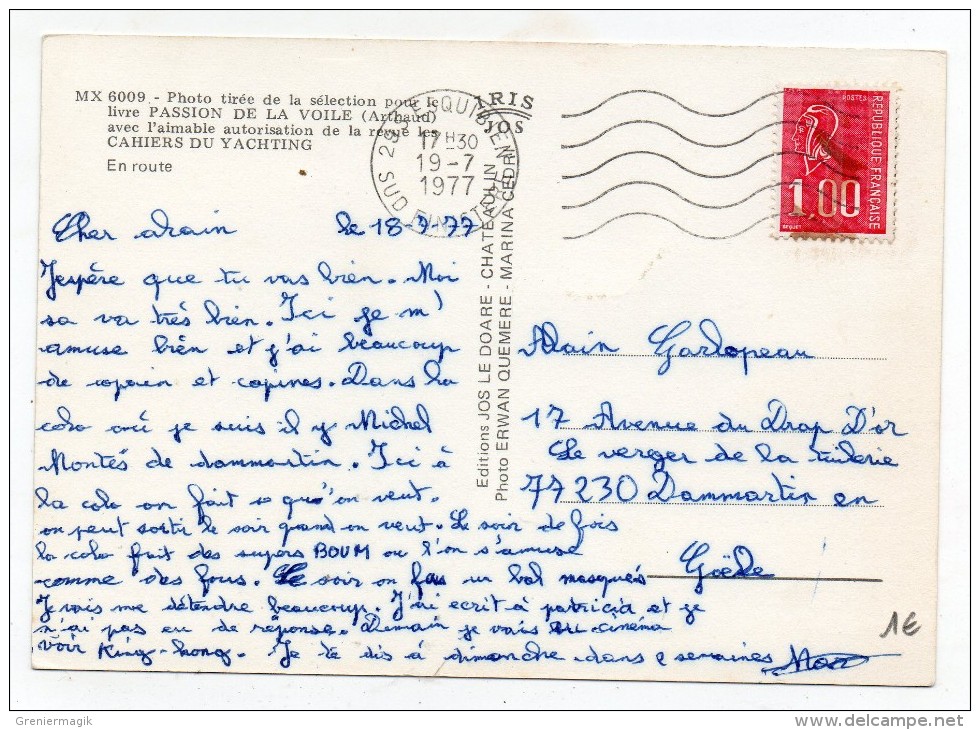 MX 6009 - Photo tirée de la sélection pour le
livre PASSION DE LA VOILE (Arthaud)
avec l'aimable autorisation de la revue les
CAHIERS DU YACHTING
En route
IRIS
JOS
17H30
19-7
1977
SUD FINISTERE
POSTES
REPUBLIQUE FRANÇAISE
1,00
BEQUET
Editions JOS LE DOARE - CHATEAULIN
Photo ERWAN QUEMERE - MARINA CEDRI
Cher alain le 18-7-77
J'espère que tu vas bien. Moi
sa va très bien. Ici je m'
amuse bien et j'ai beaucoup
de copain et copines. Dans la
colo où je suis il y Michel
Montés de dammartin. Ici à
la colo on fait se qu'on veut.
on peut sortir le soir quand on veut. Le soir de fois
la colo fait des supers BOUM ou l'on s'amuse
comme des fous. Ce soir on fais un bal masqués
Je vais me détendre beaucoup. J'ai ecrit à patricia et je
n'ai pas eu de réponse. Demain je vais au cinéma
voir King-kong. Je te dis à dimanche dans 2 semaines
Alain Garlopeau
17 Avenue du Drap D'or
Le verger de la tuilerie
77230 Dammartin en
Goële
1€
Greniermagik
www.delcampe.net